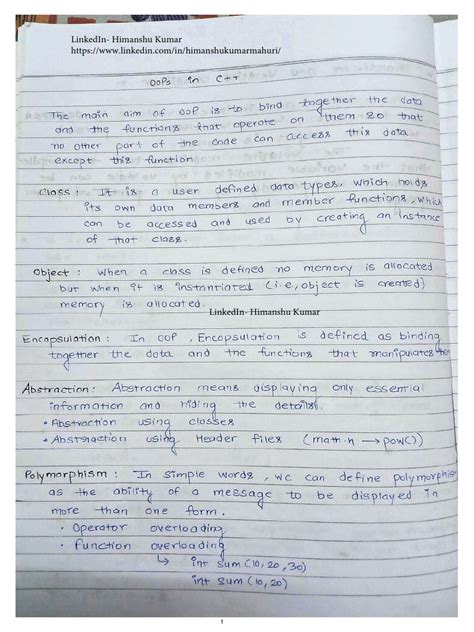 LinkedIn- Himanshu Kumar
https://www.linkedin.com/in/himanshukumarmahuri/
OOPs in C++
The main aim of OOP is to bind together the data
and the functions that operate on them so that
no other part of the code can access this data
except this function
Class : It is a user defined data types, which holds
its own data members and member functions, which
can be accessed and used by creating an instance
of that class.
Object : When a class is defined no memory is allocated
but when it is instantiated (i.e, object is created)
memory is allocated.
LinkedIn- Himanshu Kumar
Encapsulation : In OOP, Encapsulation is defined as binding
together the data and the functions that manipulates them
Abstraction : Abstraction means displaying only essential
information and hiding the details.
• Abstraction using classes
• Abstraction using Header files (math.h → pow())
Polymorphism : In simple words, we can define polymorphism
as the ability of a message to be displayed in
more than one form.
• Operator overloading
• Function overloading
↳ int sum (10, 20, 30)
int sum (10, 20)
1